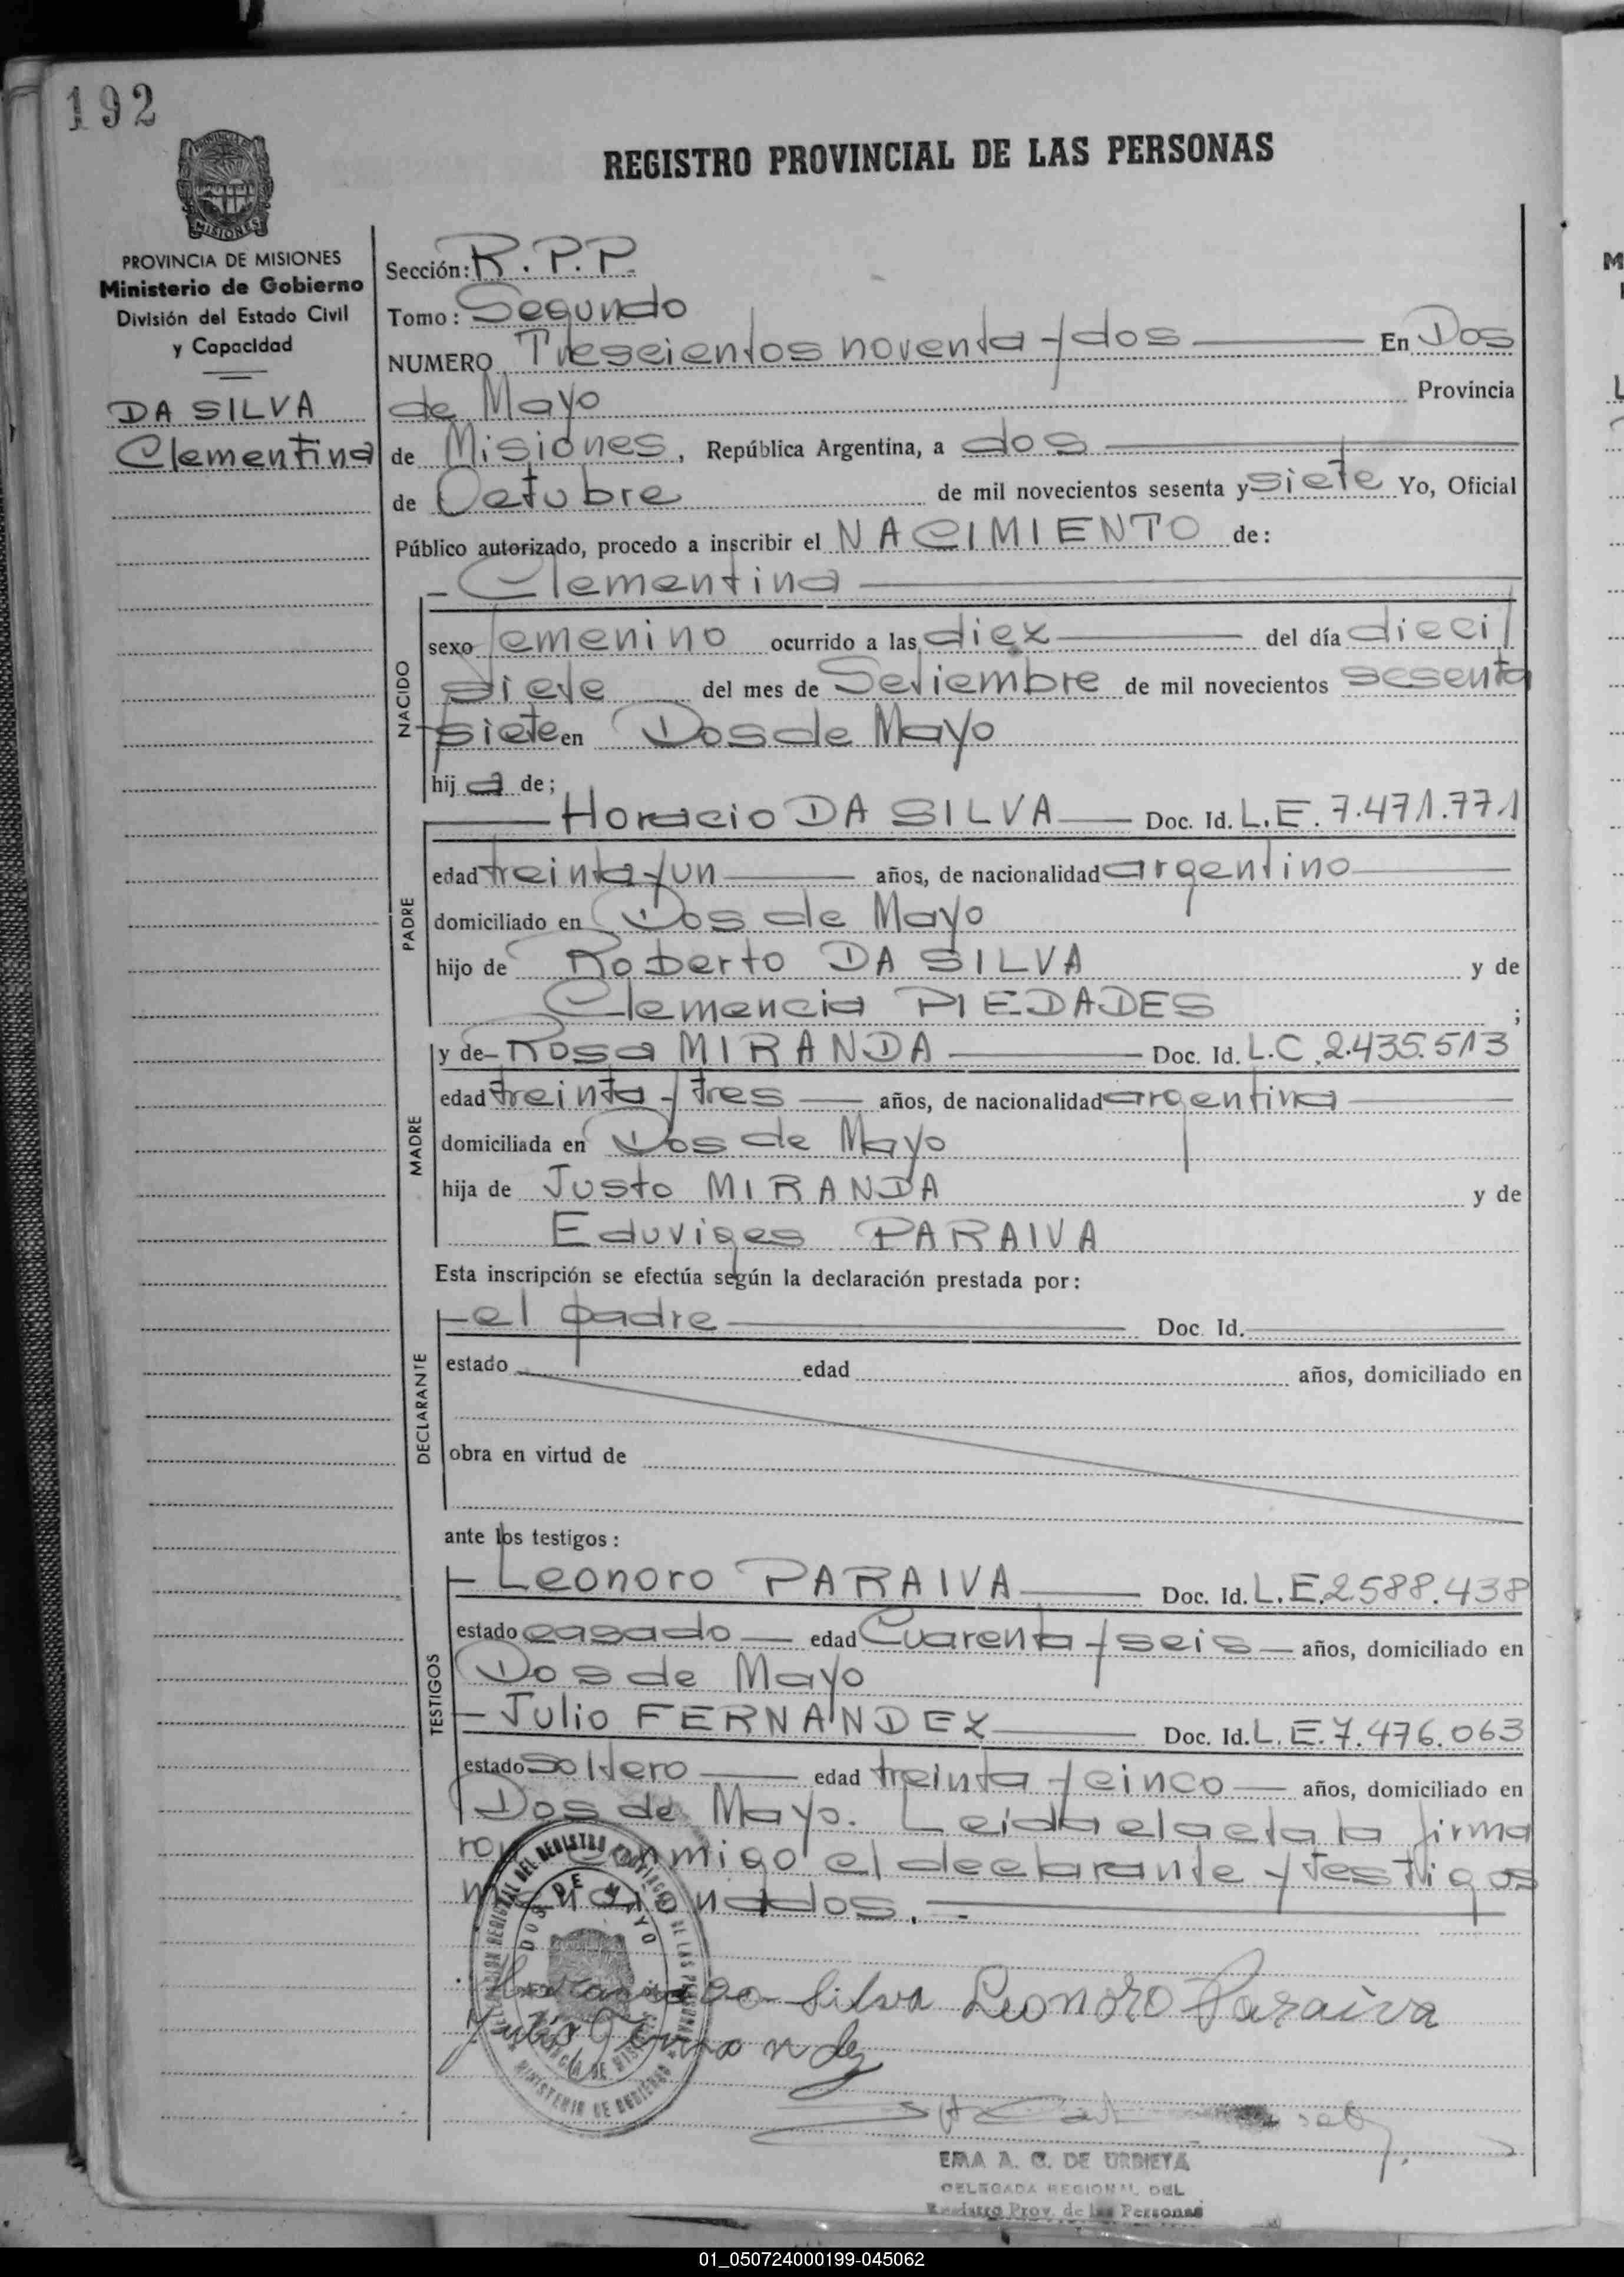 192
REGISTRO PROVINCIAL DE LAS PERSONAS
MISIONES
PROVINCIA DE MISIONES
Ministerio de Gobierno
División del Estado Civil
y Capacidad
DA SILVA
Clementina
Sección: R.P.P.
Tomo: Segundo
NUMERO Trescientos noventa y dos En Dos
de Mayo Provincia
de Misiones, República Argentina, a dos
de Octubre de mil novecientos sesenta y siete Yo, Oficial
Público autorizado, procedo a inscribir el NACIMIENTO de:
- Clementina
NACIDO
sexo femenino ocurrido a las diez del día dieci
siete del mes de Setiembre de mil novecientos sesenta
y siete en Dos de Mayo
hij a de;
PADRE
Horacio DA SILVA Doc. Id. L.E. 7.471.771
edad treinta y un años, de nacionalidad argentino
domiciliado en Dos de Mayo
hijo de Roberto DA SILVA y de
Clemencia PIEDADES ;
MADRE
y de - Rosa MIRANDA Doc. Id. L.C. 2.435.513
edad treinta y tres años, de nacionalidad argentina
domiciliada en Dos de Mayo
hija de Justo MIRANDA y de
Eduviges PARAIVA
Esta inscripción se efectúa según la declaración prestada por:
DECLARANTE
- el padre Doc. Id.
estado edad años, domiciliado en
obra en virtud de
ante los testigos:
TESTIGOS
- Leonoro PARAIVA Doc. Id. L.E. 2588.438
estado casado edad Cuarenta y seis años, domiciliado en
Dos de Mayo
- Julio FERNANDEZ Doc. Id. L.E. 7.476.063
estado soltero edad treinta y cinco años, domiciliado en
Dos de Mayo. Leida el acta la firma
ron conmigo el declarante y testigos
mencionados. -
DOS DE MAYO
MINISTERIO DE GOBIERNO
Silva Leonoro Paraiva
Julio
EMA A. G. DE URBIETA
DELEGADA REGIONAL DEL
Registro Prov. de las Personas
01_050724000199-045062